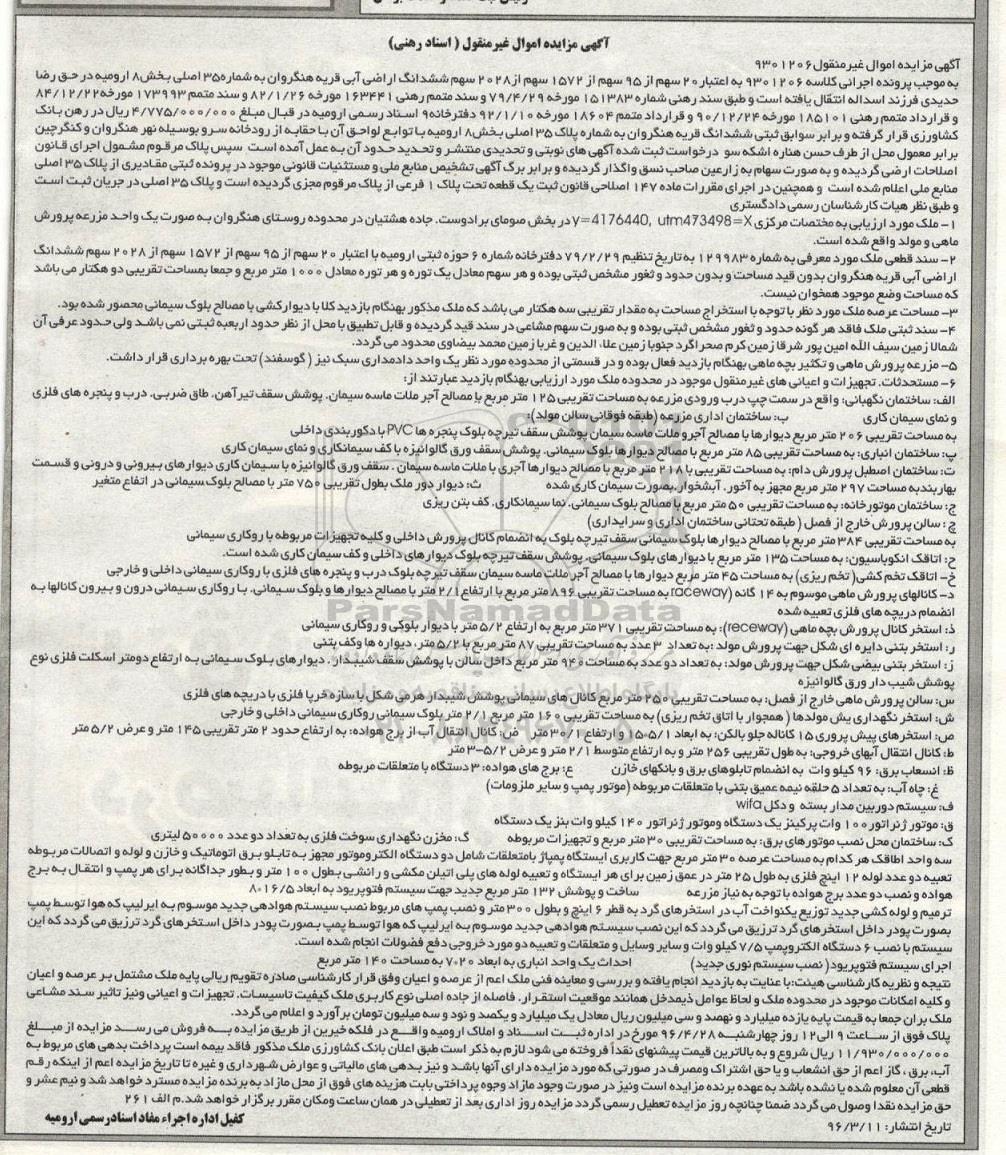 آگهی مزایده اموال غیرمنقول ( اسناد رهنی)
آگهی مزایده اموال غیرمنقول ۹۳۰۱۲۰۶
به موجب پرونده اجرائی کلاسه ۹۳۰۱۲۰۶ به اعتبار ۲۰ سهم از ۹۵ سهم از ۱۵۷۲ سهم از ۲۰۲۸ سهم ششدانگ اراضی آبی قریه هنگروان به شماره ۳۵ اصلی بخش ۸ ارومیه در حق رضا
حدیدی فرزند اسداله انتقال یافته است و طبق سند رهنی شماره ۱۵۱۳۸۳ مورخه ۷۹/۴/۲۹ و سند متمم رهنی ۱۶۳۴۴۱ مورخه ۸۲/۱/۲۶ و سند متمم ۱۷۳۹۹۳ مورخه ۸۴/۱۲/۲۲
و قرارداد متمم رهنی ۱۸۵۱۰۱ مورخه ۹۰/۱۲/۲۴ و قرارداد متمم ۱۸۶۰۴ مورخه ۹۲/۱/۱۰ دفترخانه ۹ اسناد رسمی ارومیه در قبال مبلغ ۴/۷۷۵/۰۰۰/۰۰۰ ریال در رهن بانک
کشاورزی قرار گرفته و برابر سوابق ثبتی ششدانگ قریه هنگروان به شماره پلاک ۳۵ اصلی بخش ۸ ارومیه با توابع لواحق آن با حقابه از رودخانه سرو بوسیله نهر هنگروان و کنگرچین
برابر معمول محل از طرف حسن هناره اشکه سو درخواست ثبت شده آگهی های نوبتی و تحدیدی منتشر و تحدید حدود آن به عمل آمده است سپس پلاک مرقوم مشمول اجرای قانون
اصلاحات ارضی گردیده و به صورت سهام به زارعین صاحب نسق واگذار گردیده و برابر برگ آگهی تشخیص منابع ملی و مستثنیات قانونی موجود در پرونده ثبتی مقادیری از پلاک ۳۵ اصلی
منابع ملی اعلام شده است و همچنین در اجرای مقررات ماده ۱۴۷ اصلاحی قانون ثبت یک قطعه تحت پلاک ۱ فرعی از پلاک مرقوم مجزی گردیده است و پلاک ۳۵ اصلی در جریان ثبت است
و طبق نظر هیات کارشناسان رسمی دادگستری
۱- ملک مورد ارزیابی به مختصات مرکزی y=4176440, utm473498=X در بخش صومای برادوست. جاده هشتیان در محدوده روستای هنگروان به صورت یک واحد مزرعه پرورش
ماهی و مولد واقع شده است.
۲- سند قطعی ملک مورد معرفی به شماره ۱۲۹۹۸۳ به تاریخ تنظیم ۷۹/۲/۲۹ دفترخانه شماره ۶ حوزه ثبتی ارومیه با اعتبار ۲۰ سهم از ۹۵ سهم از ۱۵۷۲ سهم از ۲۰۲۸ سهم ششدانگ
اراضی آبی قریه هنگروان بدون قید مساحت و بدون حدود و ثغور مشخص ثبتی بوده و هر سهم معادل یک توره و هر توره معادل ۱۰۰۰ متر مربع و جمعا بمساحت تقریبی دو هکتار می باشد
که مساحت وضع موجود همخوان نیست.
۳- مساحت عرصه ملک مورد نظر با توجه با استخراج مساحت به مقدار تقریبی سه هکتار می باشد که ملک مذکور بهنگام بازدید کلا با دیوارکشی با مصالح بلوک سیمانی محصور شده بود.
۴- سند ثبتی ملک فاقد هر گونه حدود و ثغور مشخص ثبتی بوده و به صورت سهم مشاعی در سند قید گردیده و قابل تطبیق با محل از نظر حدود اربعبه ثبتی نمی باشد ولی حدود عرفی آن
شمالا زمین سیف الله امین پور شرقا زمین کرم صحراگرد جنوبا زمین علاء الدین و غربا زمین محمد بیضاوی محدود می گردد.
۵- مزرعه پرورش ماهی و تکثیر بچه ماهی بهنگام بازدید فعال بوده و در قسمتی از محدوده مورد نظر یک واحد دادمداری سبک نیز ( گوسفند) تحت بهره برداری قرار داشت.
۶- مستحدثات. تجهیزات و اعیانی های غیرمنقول موجود در محدوده ملک مورد ارزیابی بهنگام بازدید عبارتند از:
الف: ساختمان نگهبانی: واقع در سمت چپ درب ورودی مزرعه به مساحت تقریبی ۱۲۵ متر مربع با مصالح آجر ملات ماسه سیمان. پوشش سقف تیرآهن. طاق ضربی. درب و پنجره های فلزی
و نمای سیمان کاری ب: ساختمان اداری مزرعه (طبقه فوقانی سالن مولد):
به مساحت تقریبی ۲۰۶ متر مربع دیوارها با مصالح آجر و ملات ماسه سیمان پوشش سقف تیرچه بلوک پنجره ها PVC با دکوربندی داخلی
پ: ساختمان انباری: به مساحت تقریبی ۸۵ متر مربع با مصالح دیوارها بلوک سیمانی. پوشش سقف ورق گالوانیزه با کف سیمانکاری و نمای سیمان کاری
ت: ساختمان اصطبل پرورش دام: به مساحت تقریبی با ۲۱۸ متر مربع با مصالح دیوارها آجری با ملات ماسه سیمان . سقف ورق گالوانیزه با سیمان کاری دیوارهای بیرونی و درونی و قسمت
بهاربندبه مساحت ۲۹۷ متر مربع مجهز به آخور. آبشخوار. بصورت سیمان کاری شده ث: دیوار دور ملک بطول تقریبی ۷۵۰ متر با مصالح بلوک سیمانی در اتفاع متغیر
ج: ساختمان موتورخانه: به مساحت تقریبی ۵۰ متر مربع با مصالح بلوک سیمانی. نما سیمانکاری. کف بتن ریزی
چ : سالن پرورش خارج از فصل ( طبقه تحتانی ساختمان اداری و سرایداری)
به مساحت تقریبی ۳۸۴ متر مربع با مصالح دیوارها بلوک سیمانی سقف تیرچه بلوک به انضمام کانال پرورش داخلی و کلیه تجهیزات مربوطه با روکاری سیمانی
ح: اتاقک انکوباسیون: به مساحت ۱۳۵ متر مربع با دیوارهای بلوک سیمانی. پوشش سقف تیرچه بلوک دیوارهای داخلی و کف سیمان کاری شده است.
خ- اتاقک تخم کشی( تخم ریزی) به مساحت ۴۵ متر مربع دیوارها با مصالح آجر ملات ماسه سیمان سقف تیرچه بلوک درب و پنجره های فلزی با روکاری سیمانی داخلی و خارجی
د- کانالهای پرورش ماهی موسوم به ۱۴ گانه (raceway) به مساحت تقریبی ۸۹۶ متر مربع با ارتفاع ۲/۱ متر با مصالح دیوارها و بلوک سیمانی. با روکاری سیمانی درون و بیرون کانالها به
انضمام دریچه های فلزی تعبیه شده
ذ: استخر کانال پرورش بچه ماهی (receway): به مساحت تقریبی ۳۷۱ متر مربع به ارتفاع ۵/۲ متر با دیوار بلوکی و روکاری سیمانی
ر: استخر بتنی دایره ای شکل جهت پرورش مولد :به تعداد ۳ عدد به مساحت تقریبی ۸۷ متر مربع با ۵/۲ متر، دیواره ها وکف بتنی
ز: استخر بتنی بیضی شکل جهت پرورش مولد: به تعداد دو عدد به مساحت ۹۴۰ متر مربع داخل سالن با پوشش سقف شیبدار. دیوارهای بلوک سیمانی به ارتفاع دومتر اسکلت فلزی نوع
پوشش شیب دار ورق گالوانیزه
س: سالن پرورش ماهی خارج از فصل: به مساحت تقریبی ۲۵۰ متر مربع کانال های سیمانی پوشش شیبدار هرمی شکل با سازه خرپا فلزی با دریچه های فلزی
ش: استخر نگهداری پیش مولدها ( همجوار با اتاق تخم ریزی) به مساحت تقریبی ۱۶۰ متر مربع ۲/۱ متر بلوک سیمانی روکاری سیمانی داخلی و خارجی
ص: استخرهای پیش پروری ۱۵ کاناله جلو بالکن: به ابعاد ۰۵/۱-۱۵ و ارتفاع ۳۰/۱ متر ض: کانال انتقال آب از برج هواده: به ارتفاع حدود ۲ متر تقریبی ۱۴۵ متر و عرض ۵/۲ متر
ط: کانال انتقال آبهای خروجی: به طول تقریبی ۲۵۶ متر و به ارتفاع متوسط ۲/۱ متر و عرض ۵/۲-۳ متر
ظ: انسعاب برق: ۹۶ کیلو وات به انضمام تابلوهای برق و بانکهای خازن ع: برج های هواده: ۳ دستگاه با متعلقات مربوطه
غ: چاه آب: به تعداد ۵ حلقه نیمه عمیق بتنی با متعلقات مربوطه (موتور پمپ و سایر ملزومات)
ف: سیستم دوربین مدار بسته و دکل wifa
ق: موتور ژنراتور ۱۰۰ وات پرکینز یک دستگاه وموتور ژنراتور ۱۴۰ کیلو وات بنز یک دستگاه
ک: ساختمان محل نصب موتورهای برق: به مساحت تقریبی ۳۰ متر مربع و تجهیزات مربوطه گ: مخزن نگهداری سوخت فلزی به تعداد دو عدد ۵۰۰۰۰ لیتری
سه واحد اطاقک هر کدام به مساحت عرصه ۳۰ متر مربع جهت کاربری ایستگاه پمپاژ بامتعلقات شامل دو دستگاه الکتروموتور مجهز به تابلو برق اتوماتیک و خازن و لوله و اتصالات مربوطه
تعبیه دو عدد لوله ۱۲ اینچ فلزی به طول ۲۵ متر در عمق زمین برای هر ایستگاه و تعبیه لوله های پلی اتیلن مکشی و رانشی بطول ۱۰۰ متر و بطور جداگانه برای هر پمپ و انتقال به برج
هواده و نصب دو عدد برج هواده با توجه به نیاز مزرعه ساخت و پوشش ۱۳۲ متر مربع جدید جهت سیستم فتوپریود به ابعاد ۱۶/۵*۸
ترمیم و لوله کشی جدید توزیع یکنواخت آب در استخرهای گرد به قطر ۶ اینچ و بطول ۳۰۰ متر و نصب پمپ های مربوط نصب سیستم هوادهی جدید موسوم به ایرلیپ که هوا توسط پمپ
بصورت پودر داخل استخرهای گرد ترزیق می گردد که این نصب سیستم هوادهی جدید موسوم به ایرلیپ که هوا توسط پمپ بصورت پودر داخل استخرهای گرد ترزیق می گردد که این
سیستم با نصب ۶ دستگاه الکتروپمپ ۷/۵ کیلو وات و سایر وسایل و متعلقات و تعبیه دو مورد خروجی دفع فضولات انجام شده است.
اجرای سیستم فتوپریود( نصب سیستم نوری جدید) احداث یک واحد انباری به ابعاد ۲۰*۷ به مساحت ۱۴۰ متر مربع
نتیجه و نظریه کارشناسی هیئت:با عنایت به بازدید انجام یافته و بررسی و معاینه فنی ملک اعم از عرصه و اعیان وفق قرار کارشناسی صادره تقویم ریالی پایه ملک مشتمل بر عرصه و اعیان
و کلیه امکانات موجود در محدوده ملک و لحاظ عوامل ذیمدخل همانند موقعیت استقرار. فاصله از جاده اصلی نوع کاربری ملک کیفیت تاسیسات. تجهیزات و اعیانی ونیز تاثیر سند مشاعی
ملک بران جمعا به قیمت پایه یازده میلیارد و نهصد و سی میلیون ریال معادل یک میلیارد و یکصد و نود و سه میلیون تومان برآورد و اعلام می گردد.
پلاک فوق از ساعت ۹ الی ۱۲ روز چهارشنبه ۹۶/۴/۲۸ مورخ در اداره ثبت اسناد و املاک ارومیه واقع در فلکه خیرین از طریق مزایده به فروش می رسد مزایده از مبلغ
۱۱/۹۳۰/۰۰۰/۰۰۰ ریال شروع و به بالاترین قیمت پیشنهای نقداً فروخته می شود لازم به ذکر است طبق اعلان بانک کشاورزی ملک مذکور فاقد بیمه است پرداخت بدهی های مربوط به
آب، برق ، گاز اعم از حق انشعاب و یا حق اشتراک ومصرف در صورتی که مورد مزایده دارای آنها باشد و نیز بدهی های مالیاتی و عوارض شهرداری و غیره تا تاریخ مزایده اعم از اینکه رقم
قطعی آن معلوم شده یا نشده باشد به عهده برنده مزایده است ونیز در صورت وجود مازاد وجوه پرداختی بابت هزینه های فوق از محل مازاد به برنده مزایده مسترد خواهد شد و نیم عشر و
حق مزایده نقدا وصول می گردد ضمنا چنانچه روز مزایده تعطیل رسمی گردد مزایده روز اداری بعد از تعطیلی در همان ساعت ومکان مقرر برگزار خواهد شد.م الف ۲۶۱
تاریخ انتشار: ۹۶/۳/۱۱ کفیل اداره اجراء مفاد اسنادرسمی ارومیه
ParsNamadData